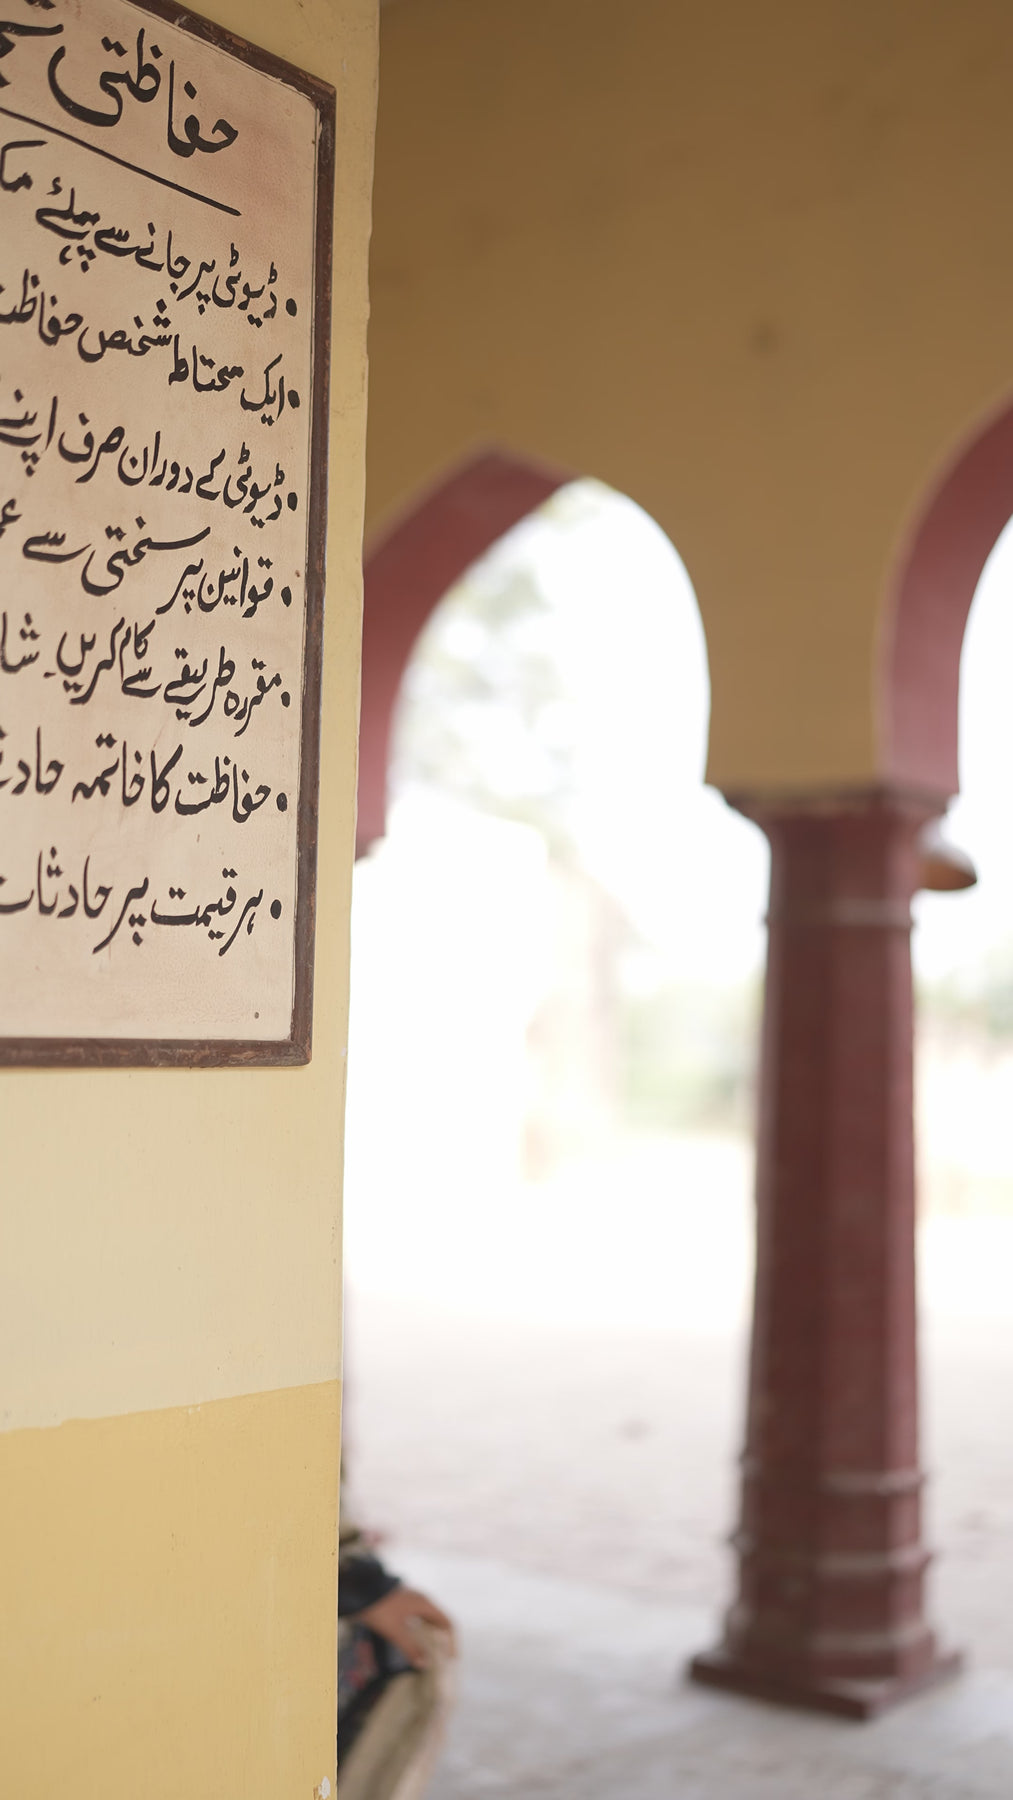 حفاظتی
• ڈیوٹی پر جانے سے پہلئے
• ایک محتاط شخص حفاظت
• ڈیوٹی کے دوران صرف اپنے
• قوانین پر سختی سے
• مقررہ طریقے سے کام کریں۔
• حفاظت کا خاتمہ
• ہر قیمت پر حادثات